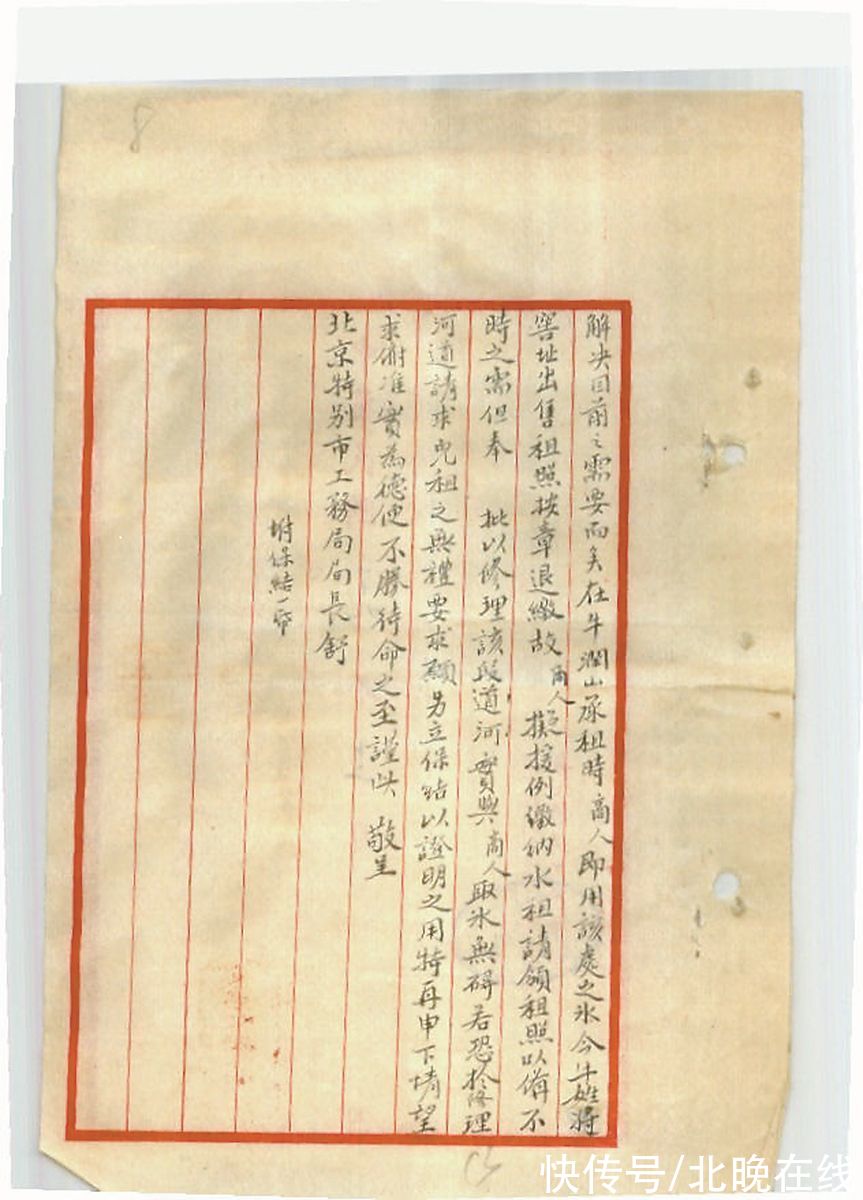 8
解決目前之需要而矣在牛潤山承租時商人即用該處之氷今牛姓將
窖址出售租照按章退繳故商人擬援例繳納水租請領租照以備不
時之需但奉 批以修理該段道河實與商人取氷無碍若恐於修理
河道請求免租之無禮要求願另立保結以證明之用特再申下情望
求俯准實為德便不勝待命之至謹呈 敬呈
北京特别市工務局局長舒
附保結一帋
快传号/北晚在线